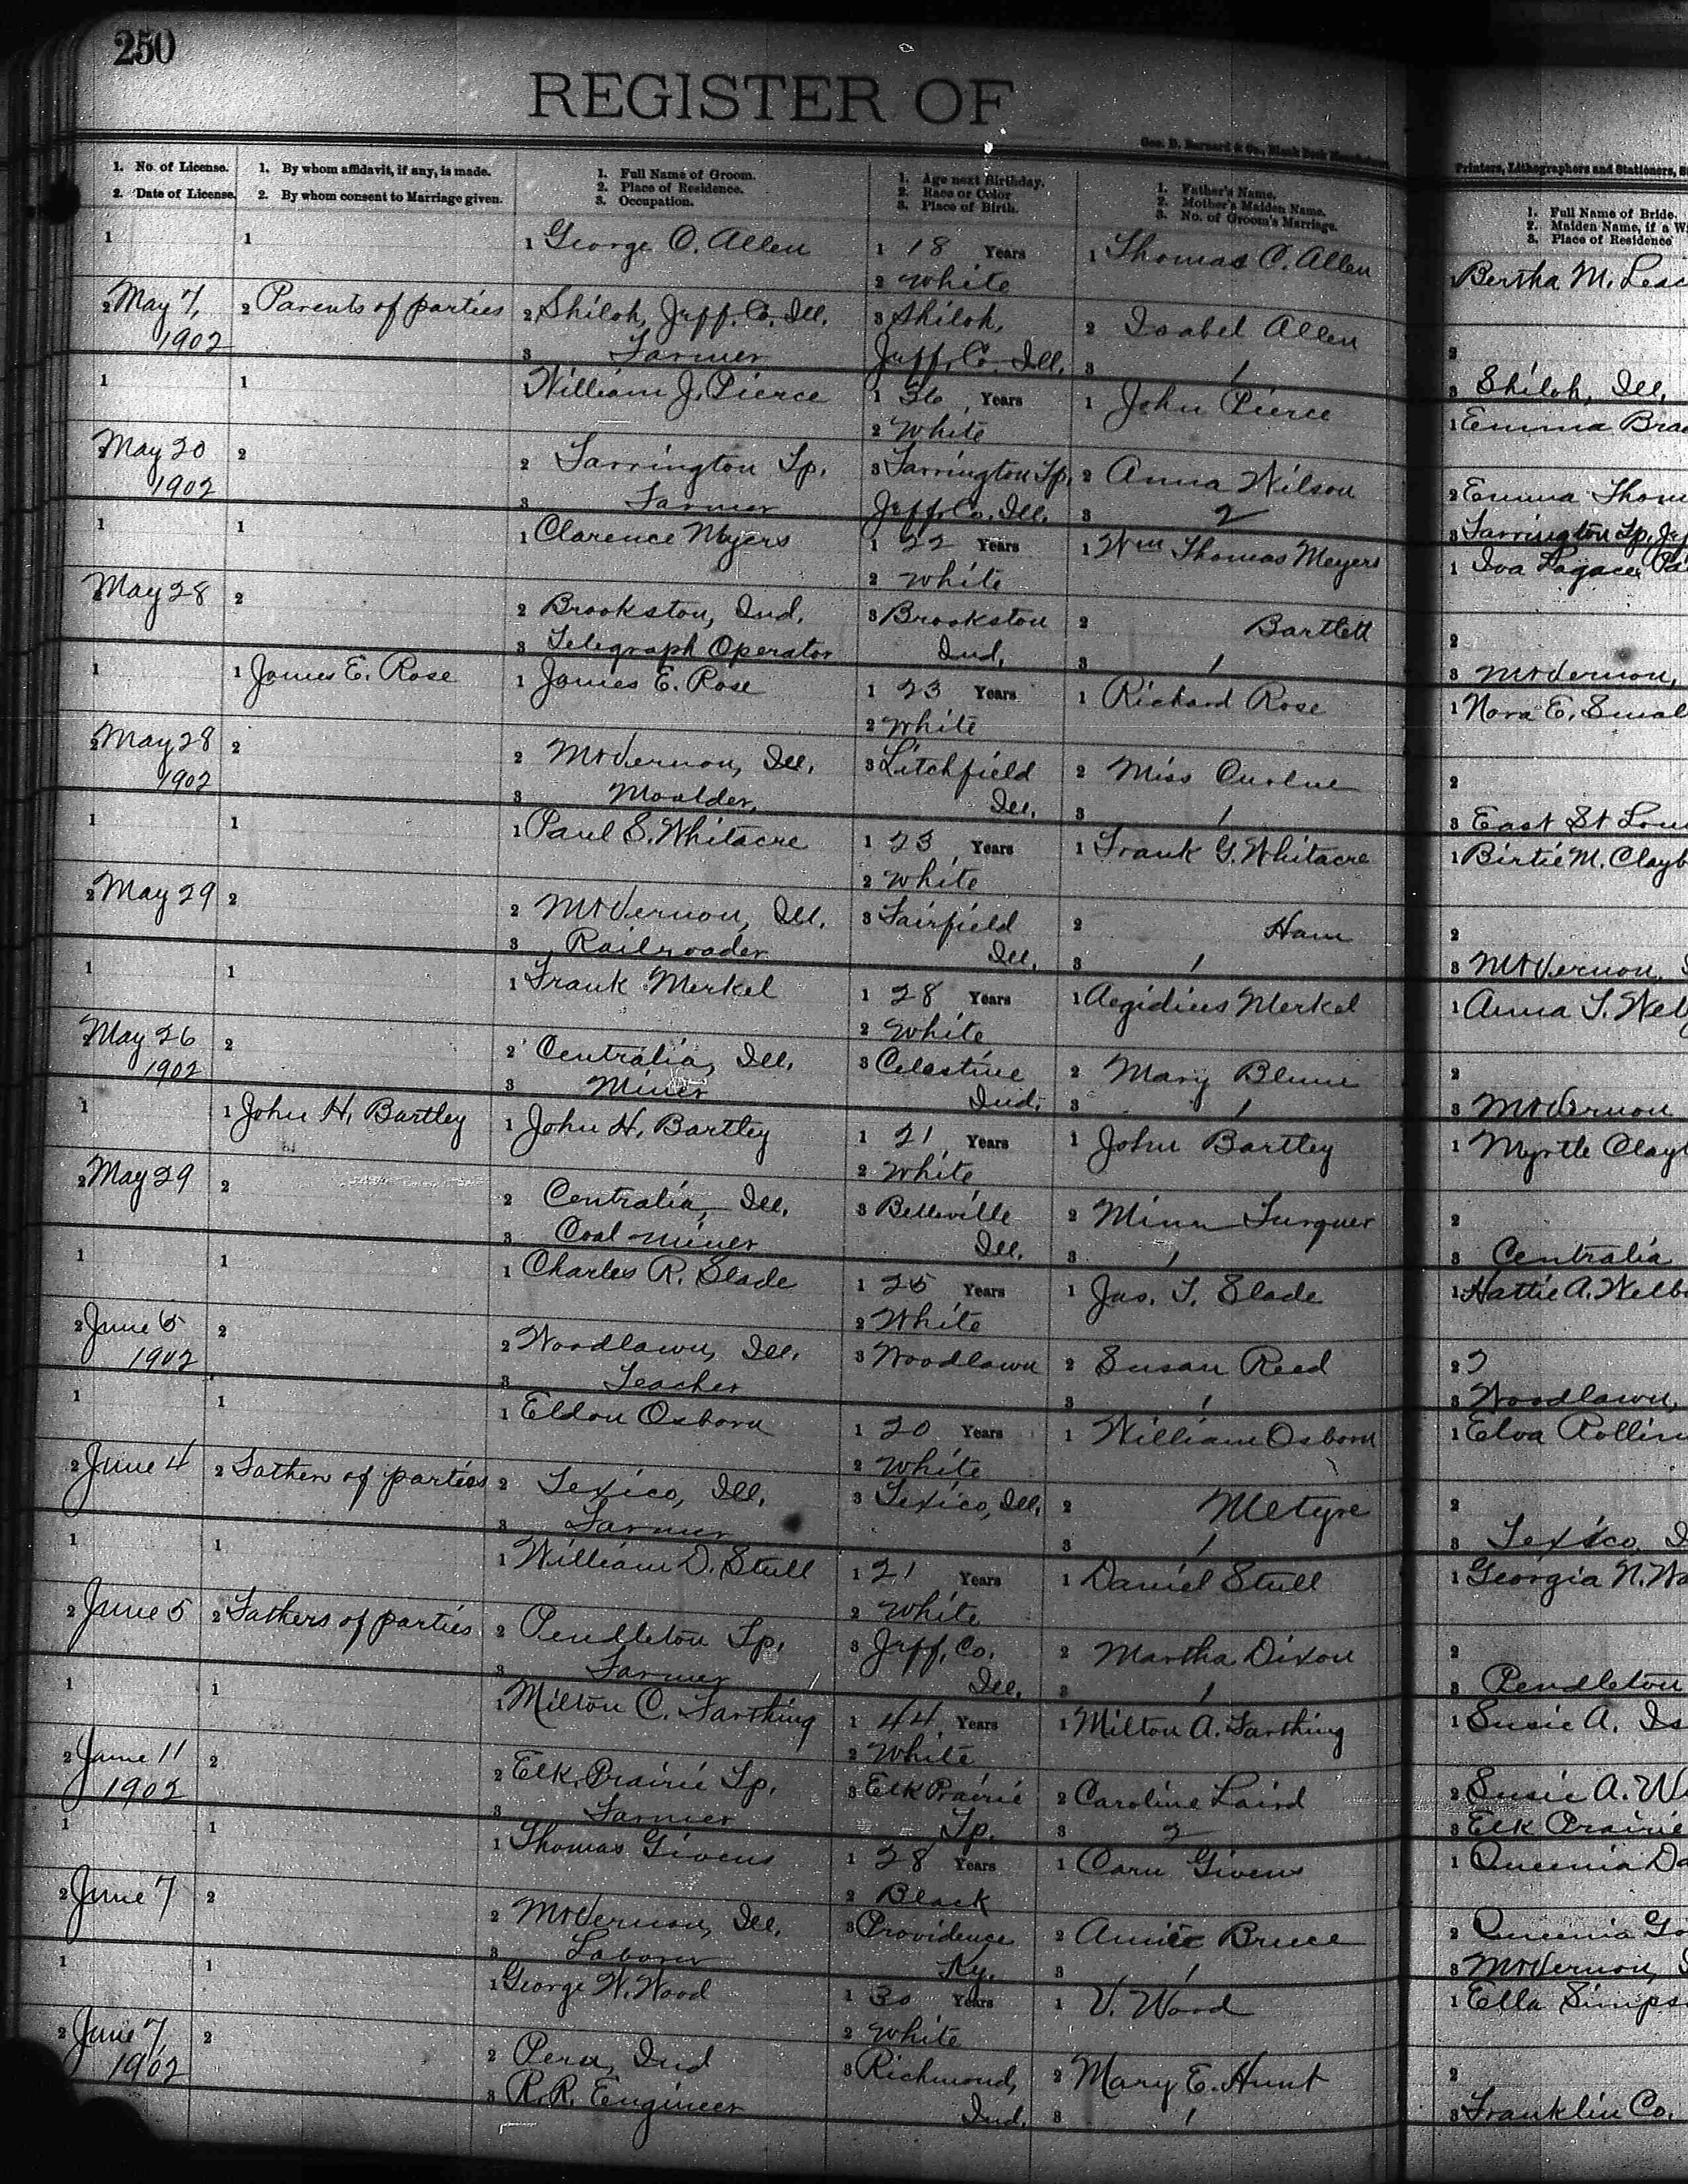 250
REGISTER OF
Geo. D. Barnard & Co., Blank Book Manufacturers
Printers, Lithographers and Stationers, S
1. No. of License.
2. Date of License.
1. By whom affidavit, if any, is made.
2. By whom consent to Marriage given.
1. Full Name of Groom.
2. Place of Residence.
3. Occupation.
1. Age next Birthday.
2. Race or Color
3. Place of Birth.
1. Father's Name.
2. Mother's Maiden Name.
3. No. of Groom's Marriage.
1. Full Name of Bride.
2. Maiden Name, if a W
3. Place of Residence
1 1 1 George O. Allen 1 18 Years 1 Thomas C. Allen 1 Bertha M. Leac
2 White
2 May 7, 2 Parents of parties 2 Shiloh, Jeff. Co. Ill. 3 Shiloh, 2 Isabel Allen 2
1902 3 Farmer Jeff. Co. Ill. 3 1 3 Shiloh, Ill.
1 1 William J. Pierce 1 36 Years 1 John Pierce 1 Emma Brad
2 White
2 May 20 2 2 Farrington Tp. 3 Farrington Tp. 2 Anna Wilson 2 Emma Thom
1902 3 Farmer Jeff. Co. Ill. 3 2 3 Farrington Tp. Jef
1 1 1 Clarence Myers 1 22 Years 1 Wm Thomas Meyers 1 Iva
2 White
2 May 28 2 2 Brookston, Ind. 3 Brookston 2 Bartlett 2
3 Telegraph Operator Ind. 3 1 3 Mt Vernon,
1 1 James E. Rose 1 James E. Rose 1 23 Years 1 Richard Rose 1 Nora E. Smal
2 White
2 May 28 2 2 Mt Vernon, Ill. 3 Litchfield 2 Miss 2
1902 3 Moulder. Ill. 3 1 3 East St Lou
1 1 1 Paul S. Whitacre 1 23 Years 1 Frank G. Whitacre 1 Birtie M. Clayb
2 White
2 May 29 2 2 Mt Vernon, Ill. 3 Fairfield 2 Ham 2
3 Railroader Ill. 3 1 3 Mt Vernon,
1 1 1 Frank Merkel 1 28 Years 1 Aegidius Merkel 1 Anna T. Welt
2 White
2 May 26 2 2 Centralia, Ill. 3 Celestine 2 Mary Blume 2
1902 3 Miner Ind. 3 1 3 Mt Vernon
1 1 John H. Bartley 1 John H. Bartley 1 21 Years 1 John Bartley 1 Myrtle Clayt
2 White
2 May 29 2 2 Centralia, Ill. 3 Belleville 2 2
3 Coal miner Ill. 3 1 3 Centralia
1 1 1 Charles R. Slade 1 25 Years 1 Jas. T. Slade 1 Hattie A. Welb
2 White
2 June 5 2 2 Woodlawn, Ill. 3 Woodlawn 2 Susan Reed 2
1902 3 Teacher 3 1 3 Woodlawn,
1 1 1 Eldon Osborn 1 20 Years 1 William Osborn 1 Elva Rollin
2 White
2 June 4 2 Fathers of parties 2 Texico, Ill. 3 Texico, Ill. 2 McTyre 2
3 Farmer 3 1 3 Texico, I
1 1 1 William D. Stull 1 21 Years 1 Daniel Stull 1 Georgia N. Wa
2 White
2 June 5 2 Fathers of parties 2 Pendleton Tp. 3 Jeff. Co. 2 Martha Dixon 2
3 Farmer Ill. 3 1 3 Pendleton
1 1 1 Milton C. Farthing 1 44 Years 1 Milton A. Farthing 1 Susie A. Is
2 White
2 June 11 2 2 Elk Prairie Tp. 3 Elk Prairie 2 Caroline Laird 2 Susie A. Wi
1902 3 Farmer Tp. 3 2 3 Elk Prairie
1 1 1 Thomas Givens 1 28 Years 1 Givens 1 Queenia Da
2 Black
2 June 7 2 2 Mt Vernon, Ill. 3 Providence 2 Annie Bruce 2 Queenia Go
3 Laborer Ky. 3 1 3 Mt Vernon, I
1 1 1 George W. Wood 1 30 Years 1 V. Wood 1 Ella Simps
2 White
2 June 7 2 2 Peru, Ind 3 Richmond, 2 Mary E. Hunt 2
1902 3 R.R. Engineer Ind. 3 1 3 Franklin Co.